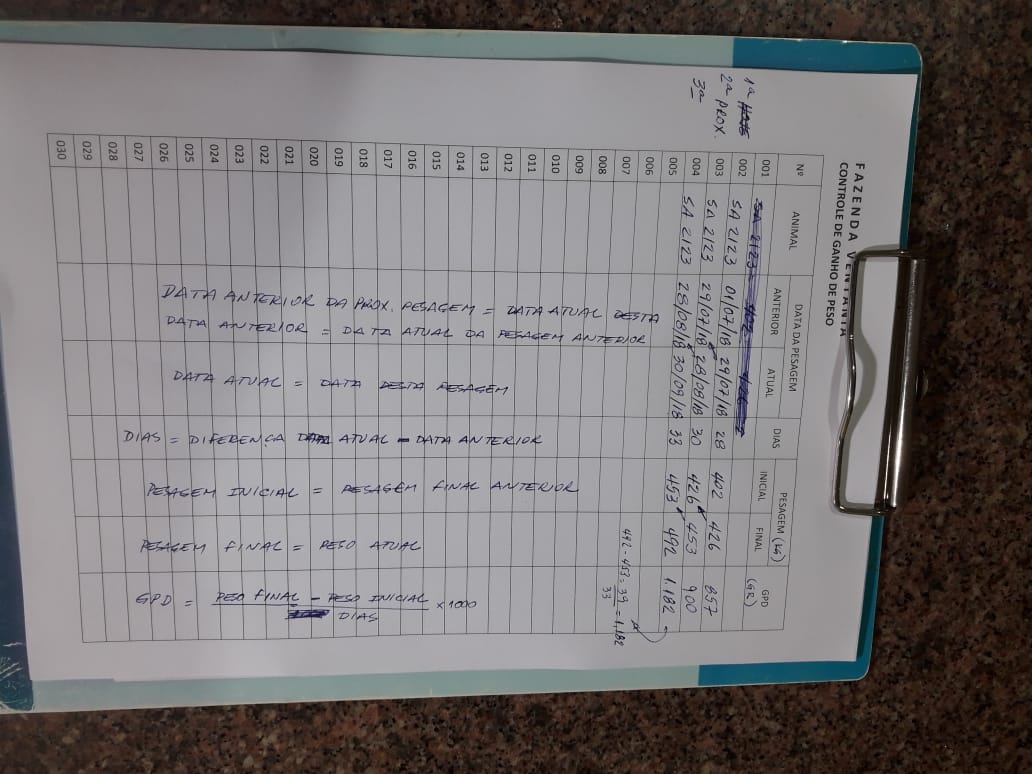 FAZENDA VENTANIA
CONTROLE DE GANHO DE PESO
Nº ANIMAL DATA DA PESAGEM DIAS PESAGEM (KG) GPD (GR)
ANTERIOR ATUAL INICIAL FINAL
1ª
2ª PROX.
3ª
001 SA 2123 402
002 SA 2123 01/07/18 29/07/18 28 402 426 857
003 SA 2123 29/07/18 28/08/18 30 426 453 900
004 SA 2123 28/08/18 30/09/18 33 453 492 1.182
005
006
007 492-453=39 = 1,182
33
008
009
010
011
012
013
014
015
016
017
018
019
020
021
022
023
024
025
026
027
028
029
030
DATA ANTERIOR DA PROX. PESAGEM = DATA ATUAL DESTA
DATA ANTERIOR = DATA ATUAL DA PESAGEM ANTERIOR
DATA ATUAL = DATA DESTA PESAGEM
DIAS = DIFERENCA ATUAL - DATA ANTERIOR
PESAGEM INICIAL = PESAGEM FINAL ANTERIOR
PESAGEM FINAL = PESO ATUAL
GPD = PESO FINAL - PESO INICIAL x 1000
DIAS